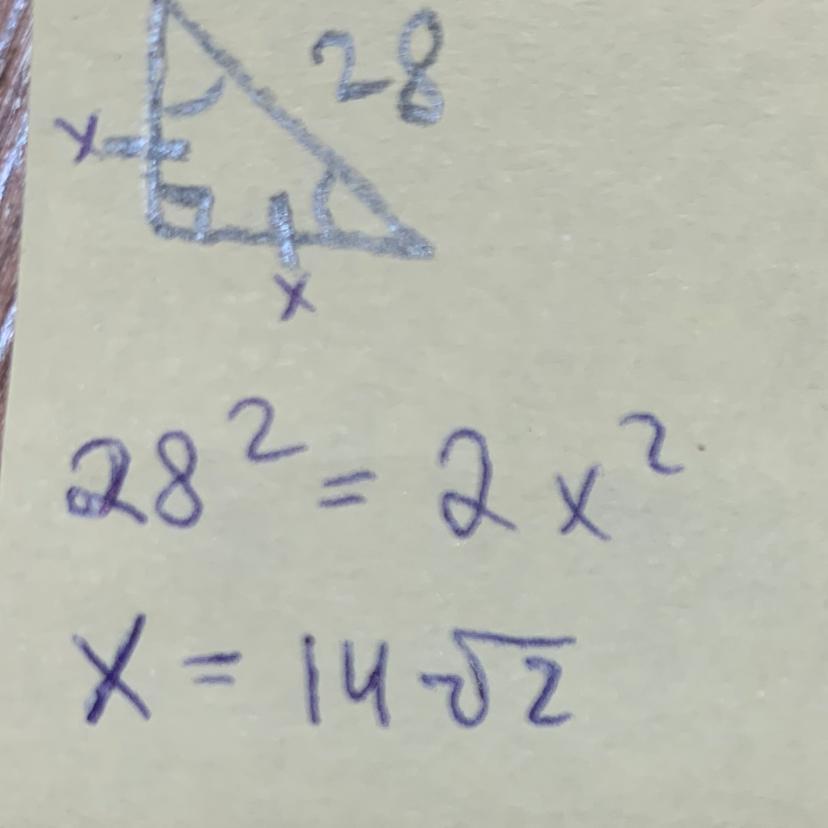 28
x
x
28² = 2x²
x = 14√2